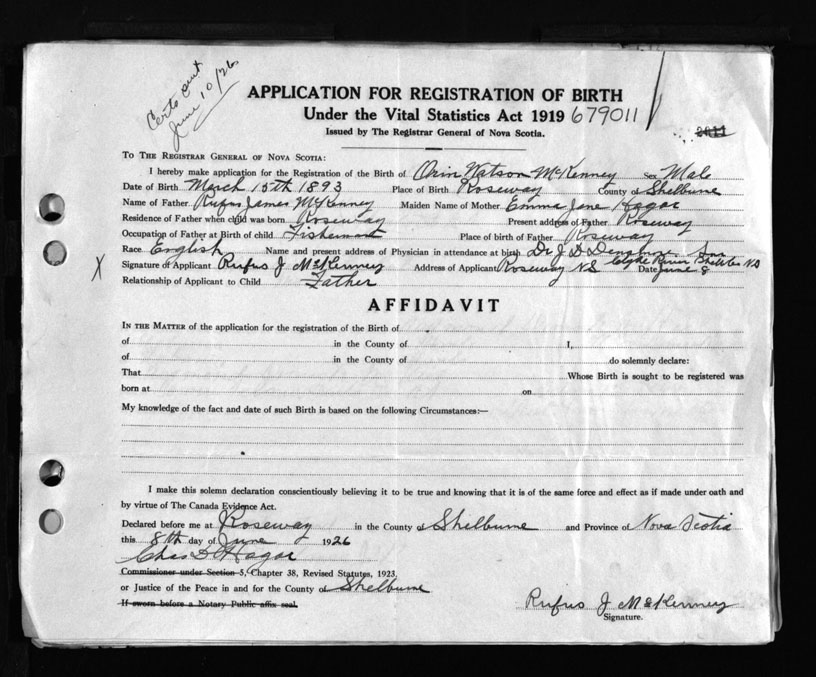 Certs sent
June 10/26
APPLICATION FOR REGISTRATION OF BIRTH
Under the Vital Statistics Act 1919 679011
Issued by The Registrar General of Nova Scotia.
TO THE REGISTRAR GENERAL OF NOVA SCOTIA:
I hereby make application for the Registration of the Birth of Orin Watson McKenney Sex Male
Date of Birth March 15th 1893 Place of Birth Roseway County of Shelburne
Name of Father Rufus James McKenney Maiden Name of Mother Emma Jane Hagar
Residence of Father when child was born Roseway Present address of Father Roseway
Occupation of Father at Birth of child Fisherman Place of birth of Father Roseway
Race English Name and present address of Physician in attendance at birth Dr J D Densmore
Clyde River Shelb Co NS
X Signature of Applicant Rufus J McKenney Address of Applicant Roseway NS Date June 8
Relationship of Applicant to Child Father
AFFIDAVIT
IN THE MATTER of the application for the registration of the Birth of
of in the County of I,
of in the County of do solemnly declare:
That Whose Birth is sought to be registered was
born at on
My knowledge of the fact and date of such Birth is based on the following Circumstances:—
I make this solemn declaration conscientiously believing it to be true and knowing that it is of the same force and effect as if made under oath and
by virtue of The Canada Evidence Act.
Declared before me at Roseway in the County of Shelburne and Province of Nova Scotia
this 8th day of June 1926
Chas D Hagar
Commissioner under Section 5, Chapter 38, Revised Statutes, 1923.
or Justice of the Peace in and for the County of Shelburne
If sworn before a Notary Public affix seal.
Rufus J McKenney
Signature.